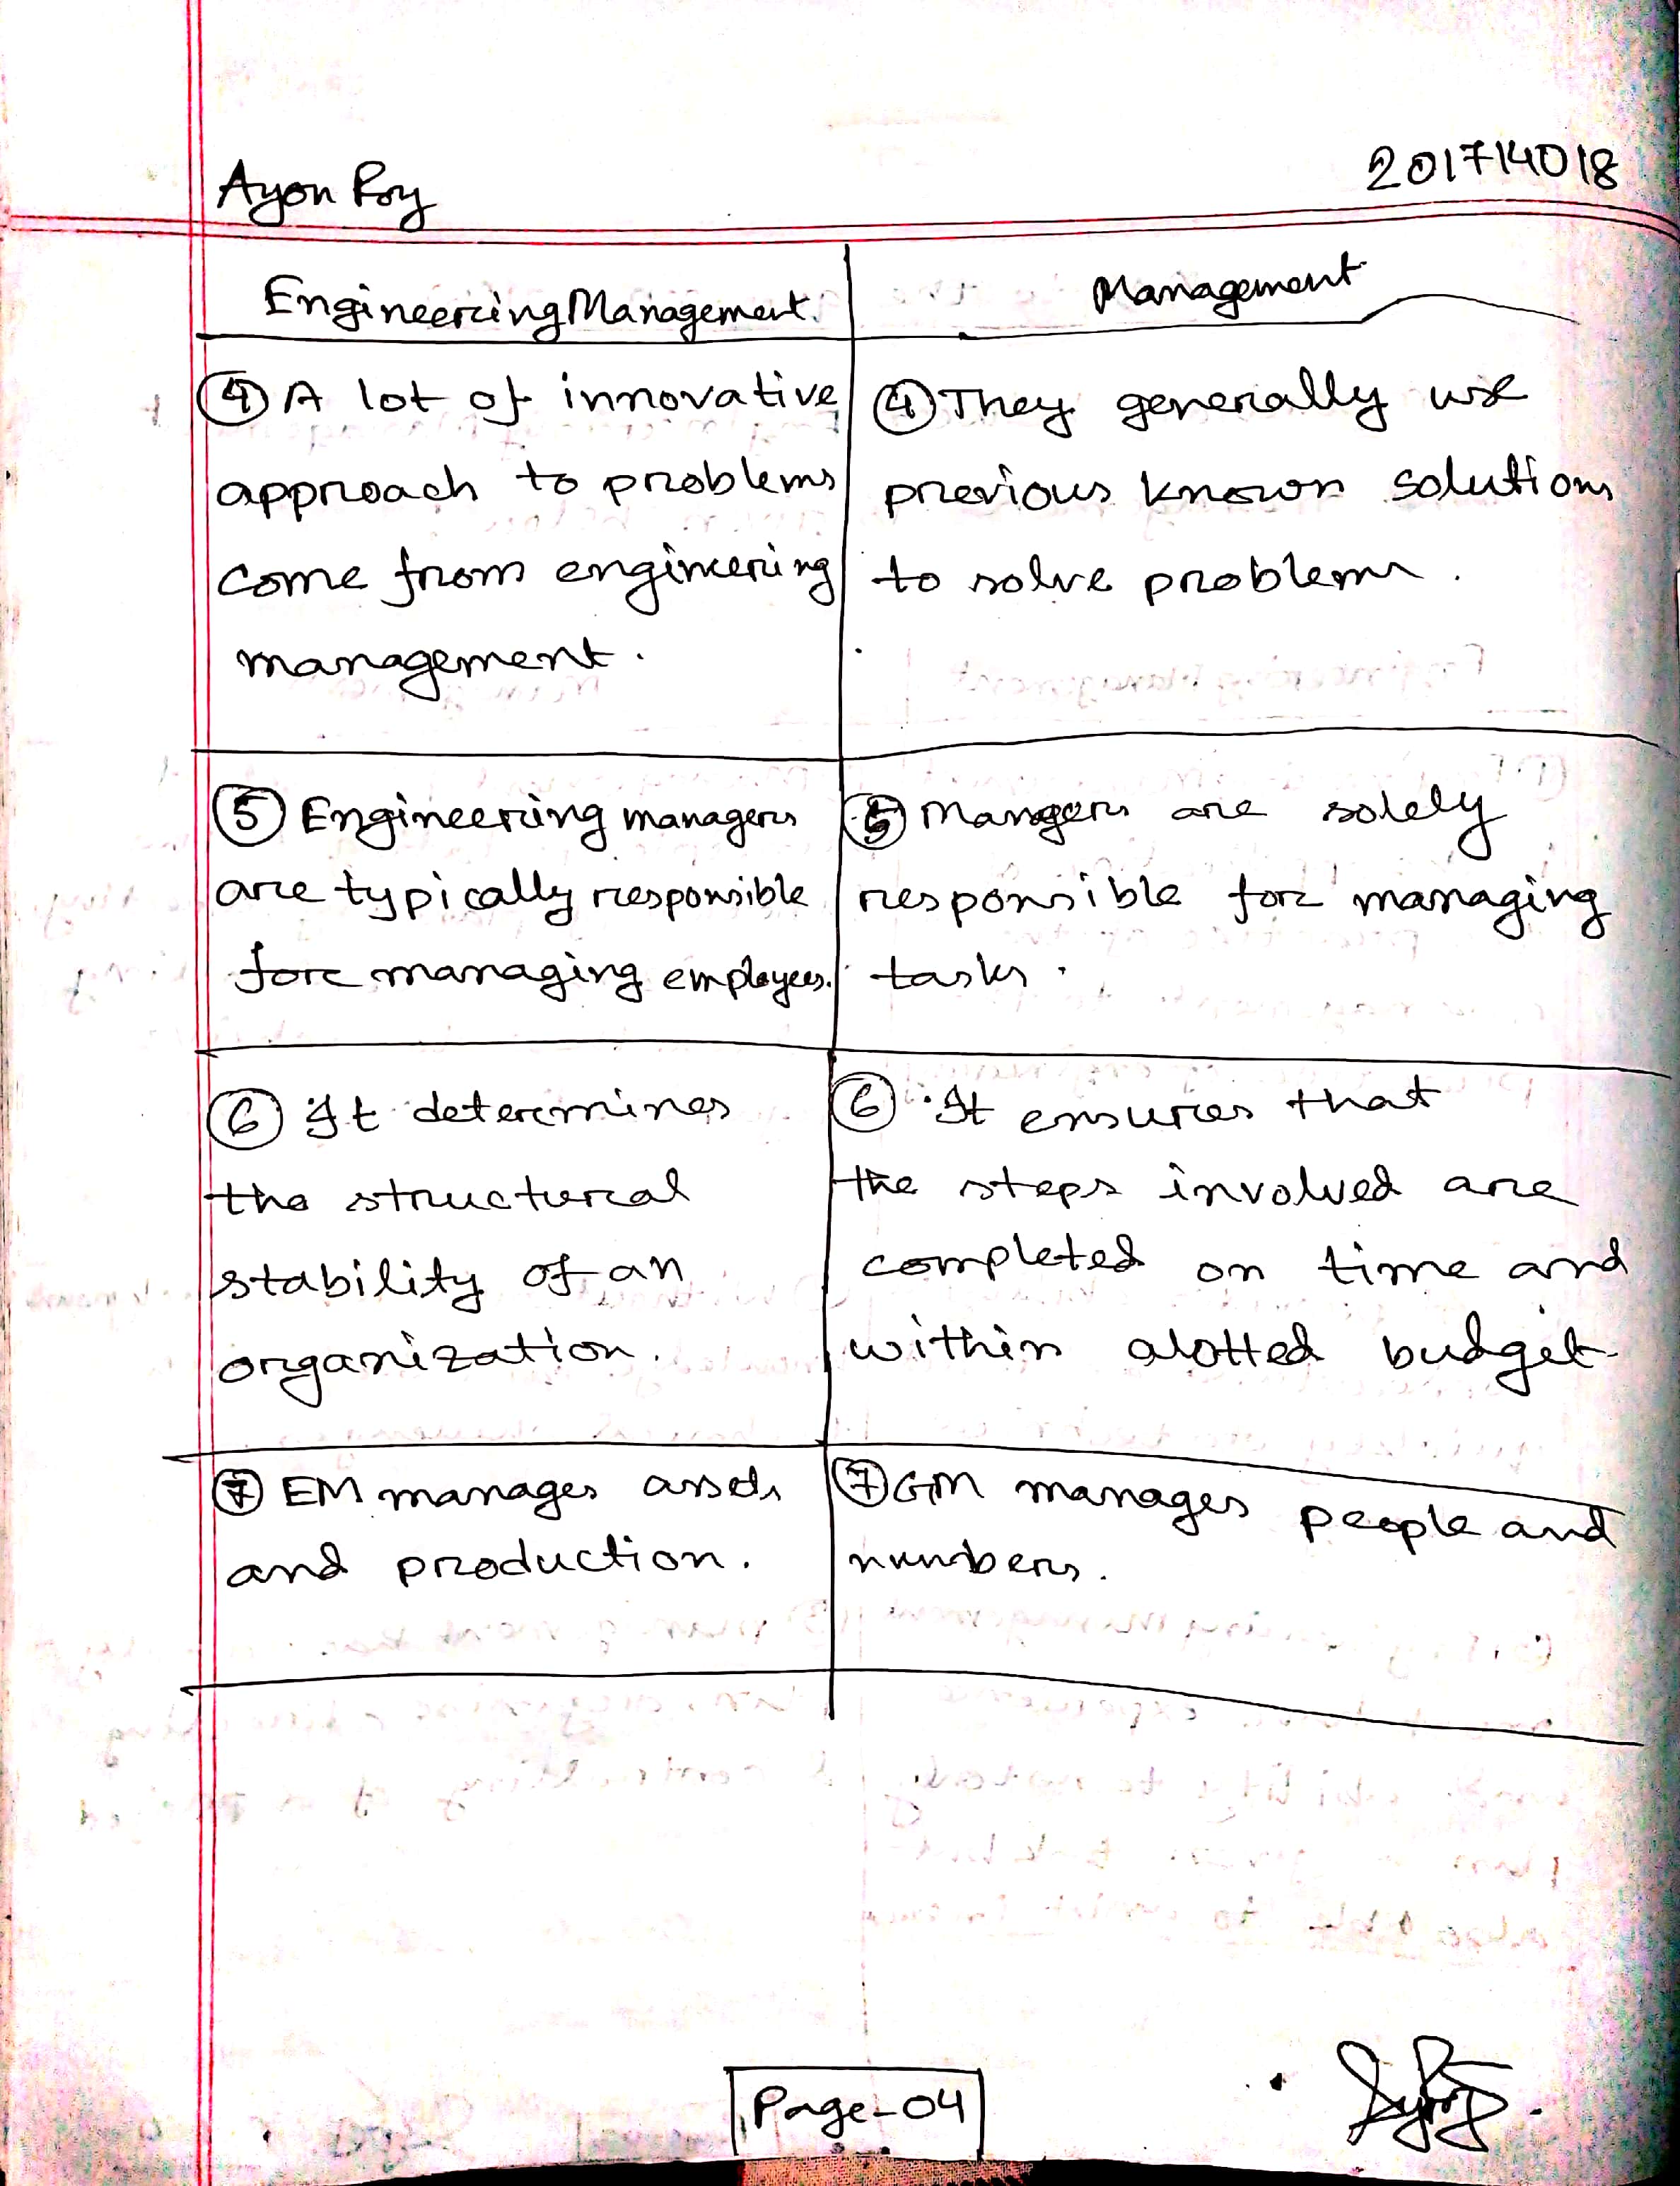 Ayon Roy
201714018
Engineering Management
Management
④ A lot of innovative
approach to problems
come from engineering
management.
④ They generally use
previous known solutions
to solve problems.
⑤ Engineering managers
are typically responsible
for managing employees.
⑤ Mangers are solely
responsible for managing
tasks.
⑥ It determines
the structural
stability of an
organization.
⑥ It ensures that
the steps involved are
completed on time and
within alotted budget.
⑦ EM manages assets
and production.
⑦ GM manages people and
numbers.
Page-04